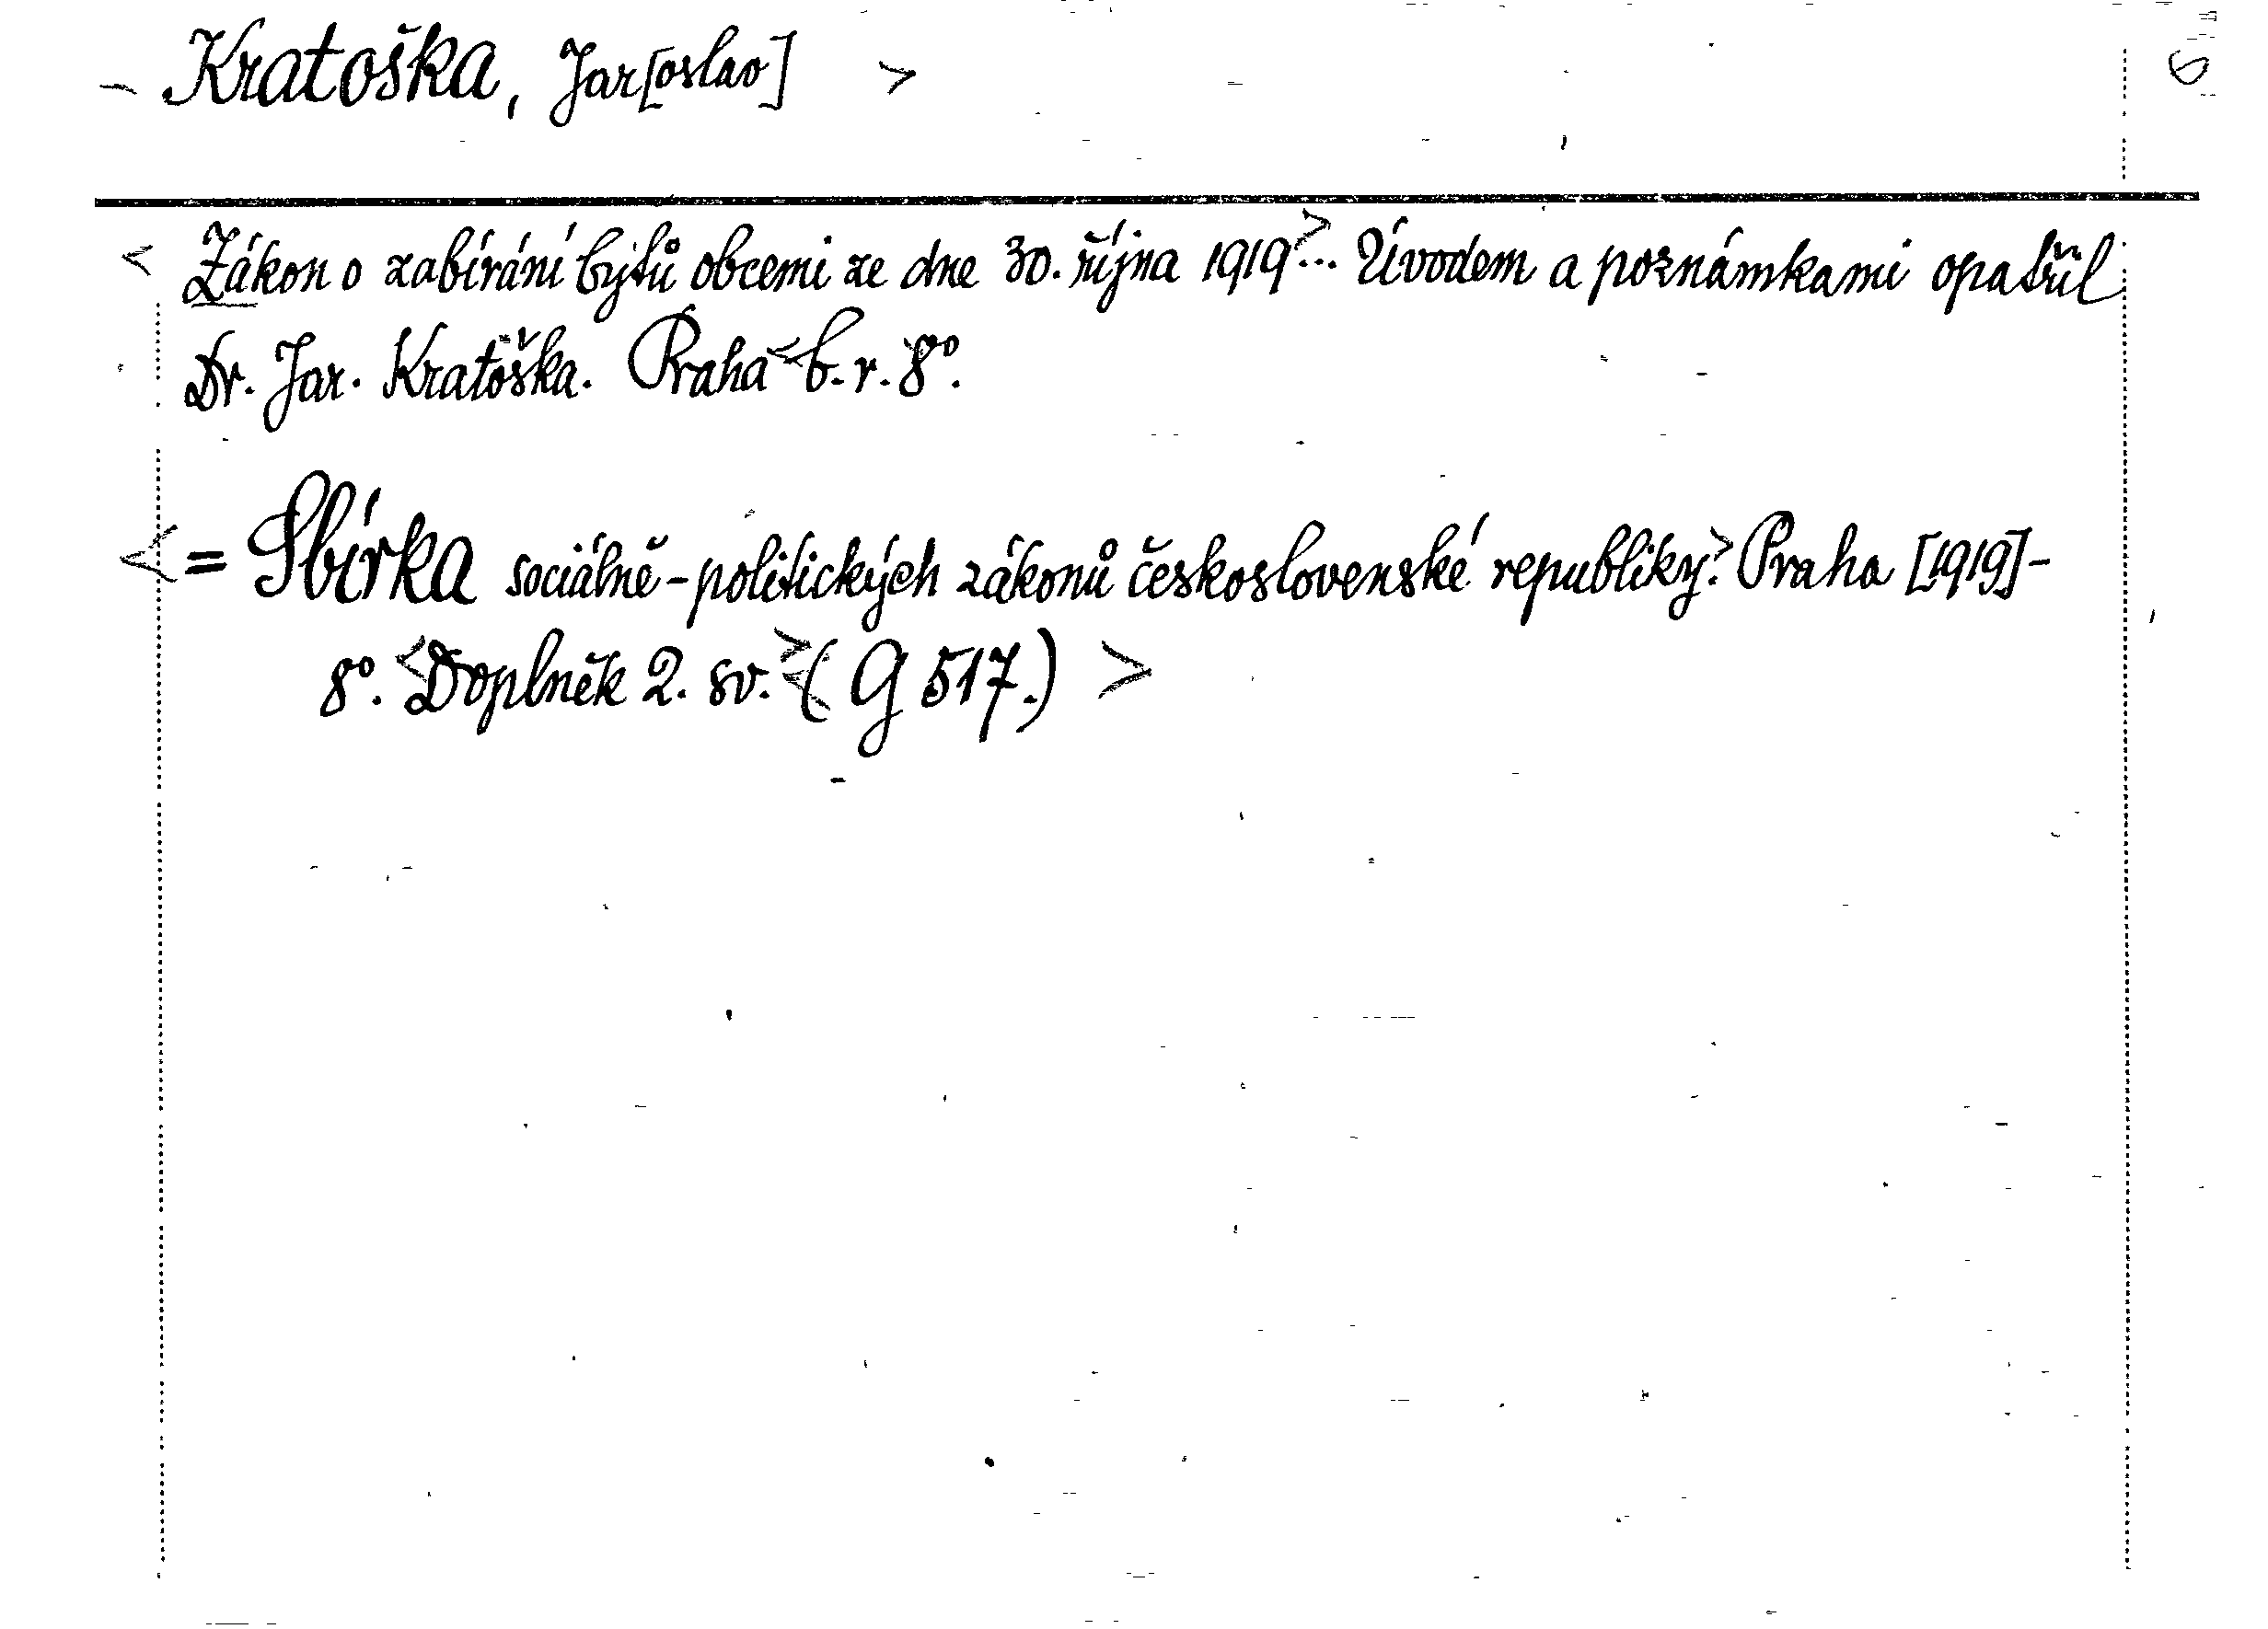 Kratoška, Jar[oslav]
Zákon o zabírání bytů obcemi ze dne 30. října 1919... Úvodem a poznámkami opatřil
Dr. Jar. Kratoška. Praha b. r. 8°.
= Sbírka sociálně-politických zákonů československé republiky. Praha [1919]-
8°. Doplněk 2. sv. (G 517.)